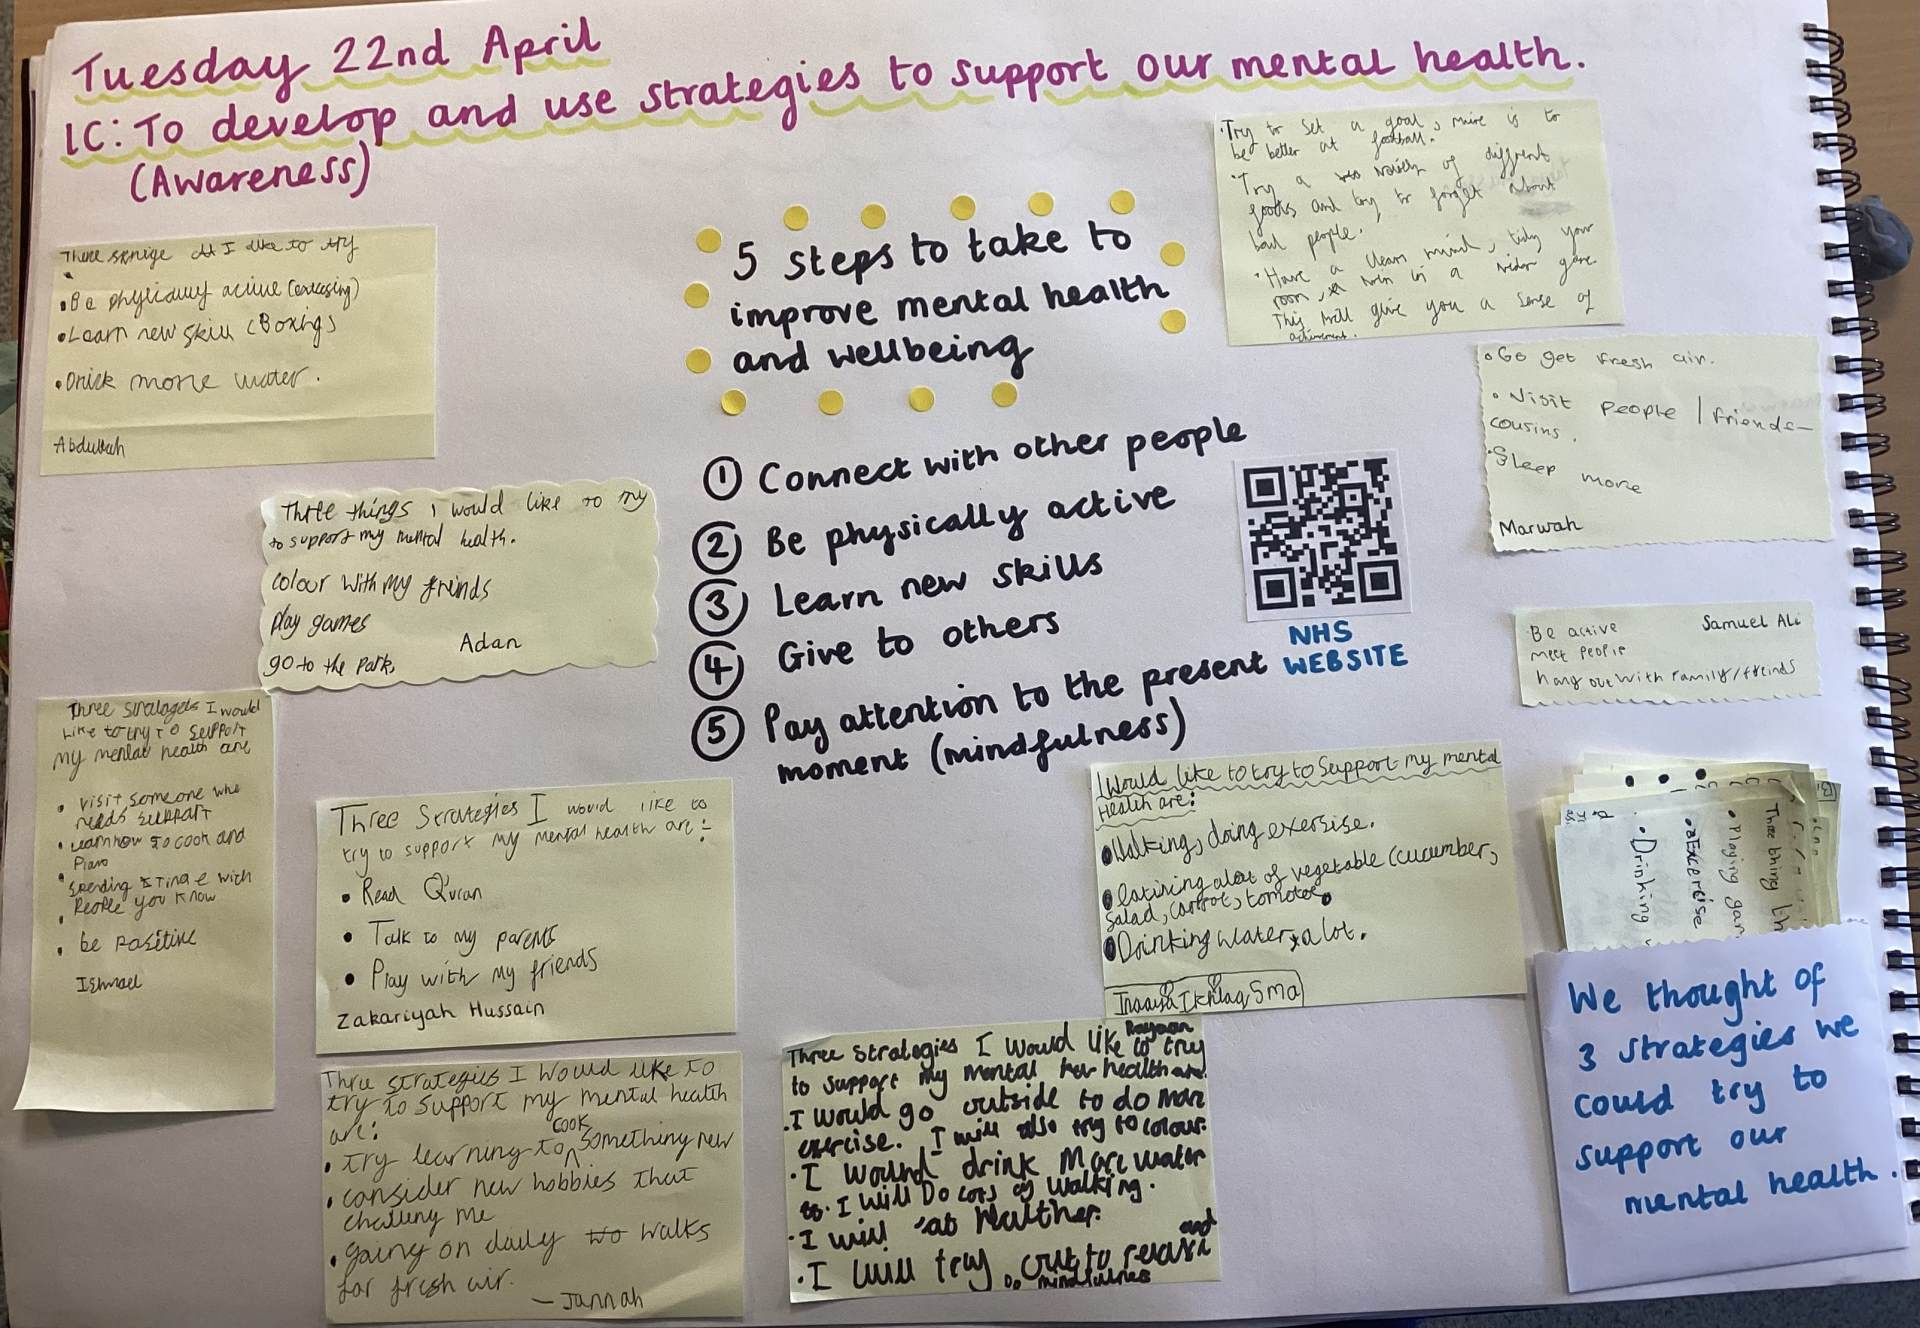 Tuesday 22nd April
LC: To develop and use strategies to support our mental health.
(Awareness)
5 steps to take to
improve mental health
and wellbeing
① Connect with other people
② Be physically active
③ Learn new skills
④ Give to others
⑤ Pay attention to the present
moment (mindfulness)
NHS
WEBSITE
I like to try
• Be physically active
• Learn new skill (Boxing)
• more water.
Abdullah
Three things I would like to
to support my mental health.
colour with my freinds
play games
go to the park,
Adan
Three I would
Like to try to support
my mental health are
• visit someone who
needs support
• Learn how to cook and
Piano
• spending time with
People you know
•
• be positive
Ishmael
Three Strategies I would like to
try to support my mental health are:-
• Read Quran
• Talk to my parents
• Play with my friends
Zakariyah Hussain
Three strategies I would like to
try to support my mental health
are:
• try learning to cook something new
• consider new hobbies that
me
• going on daily walks
for fresh air.
– Jannah
Rayaan
Three strategies I would like to try
to support my mental health are.
. I would go outside to do more
exercise. I will also try to colour.
• I drink more water
• I will Do lots of walking.
• I will
• I will try
and
Do mindfulnes
I would like to try to support my mental
health are:
• Walking, doing exersise.
• alot of vegetable (cucumber,
salad, carrot,
• Drinking water alot.
• Try to set a goal, mine is to
be better at football.
• Try a of diffrent
foods and try to forget about
bad people.
• Have a clean mind, tidy your
room, win in a game.
This will give you a sense of
• Go get fresh air.
• Visit people / friends–
cousins.
• Sleep more
Marwah
Be active
meet people
hang out with family/freinds
Samuel Ali
Three thing
• Playing
• Exercise
• Drinking
We thought of
3 strategies we
could try to
support our
mental health.